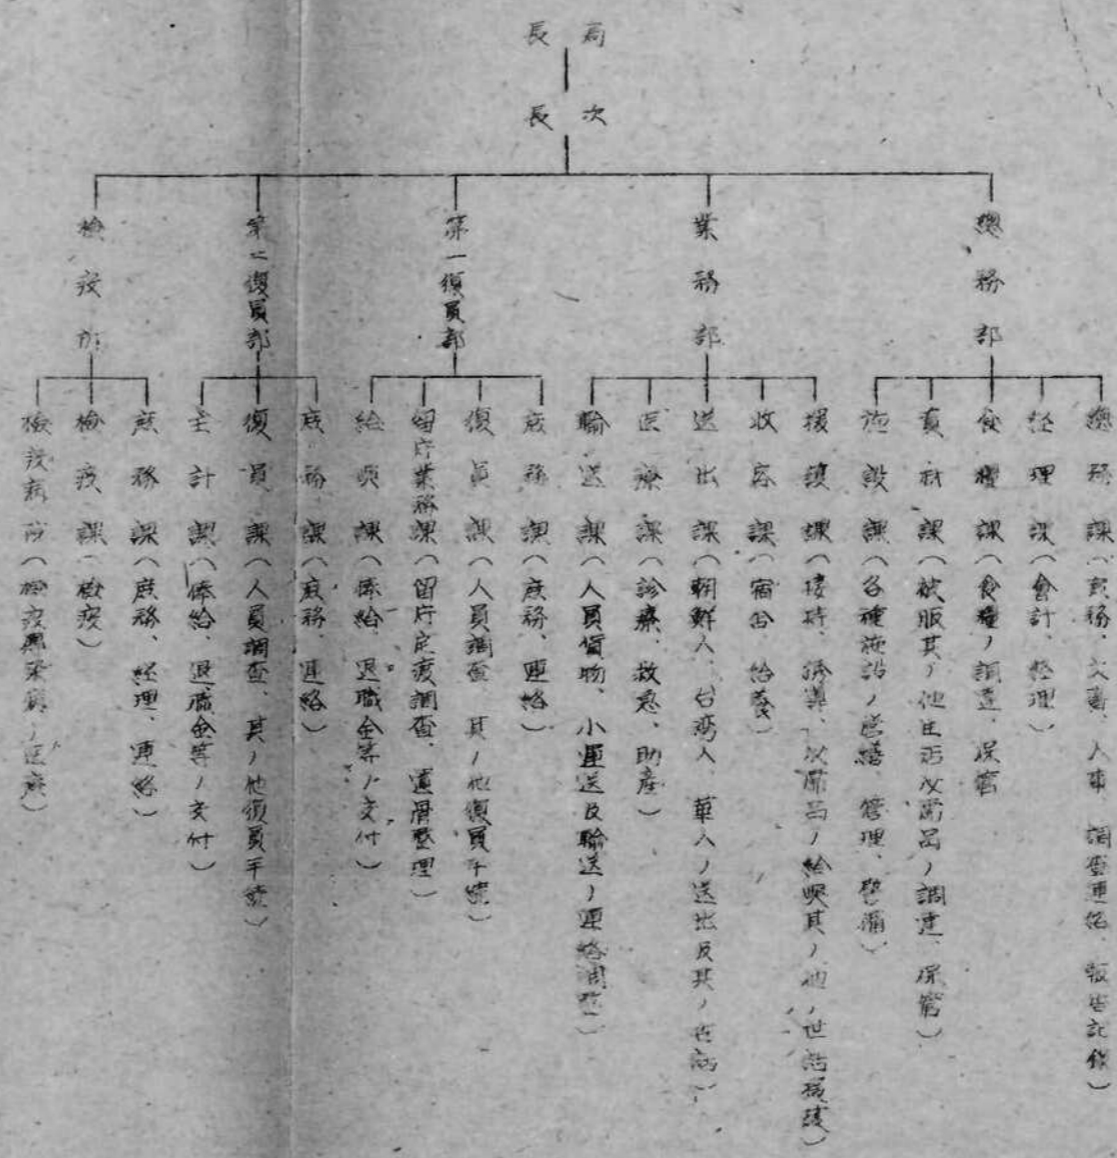 局長
次長
總務部
總務課（庶務、文書、人事、調査連絡、報告記録）
経理課（會計、経理）
食糧課（食糧ノ調達、保管
資材課（被服其ノ他生活必需品ノ調達、保管）
施設課（各種施設ノ営繕、管理、警備）
業務部
援護課（接待、誘導、必需品ノ給與其ノ他ノ世話援護）
收容課（宿舎、給養）
送出課（朝鮮人、台湾人、華人ノ送出及其ノ世話）
医療課（診療、救急、助産）
輸送課（人員貨物、小運送及輸送ノ連絡調整）
第一復員部
庶務課（庶務、連絡）
復員課（人員調査、其ノ他復員手續）
留守業務課（留守宅渡調査、遺骨整理）
給與課（俸給、退職金等ノ交付）
第二復員部
庶務課（庶務、連絡）
復員課（人員調査、其ノ他復員手続）
主計課（俸給、退職金等ノ交付）
檢疫所
庶務課（庶務、経理、連絡）
檢疫課（檢疫）
檢疫病院（檢疫 ノ医療）